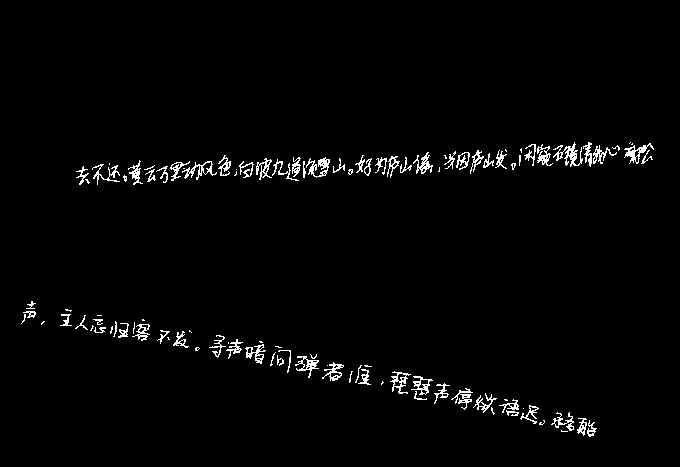 去不还。黄云万里动风色,白波九道流雪山。好为庐山谣,兴因庐山发。闲窥石镜清我心,谢松
声,主人忘归客不发。寻声暗问弹者谁,琵琶声停欲语迟。移船